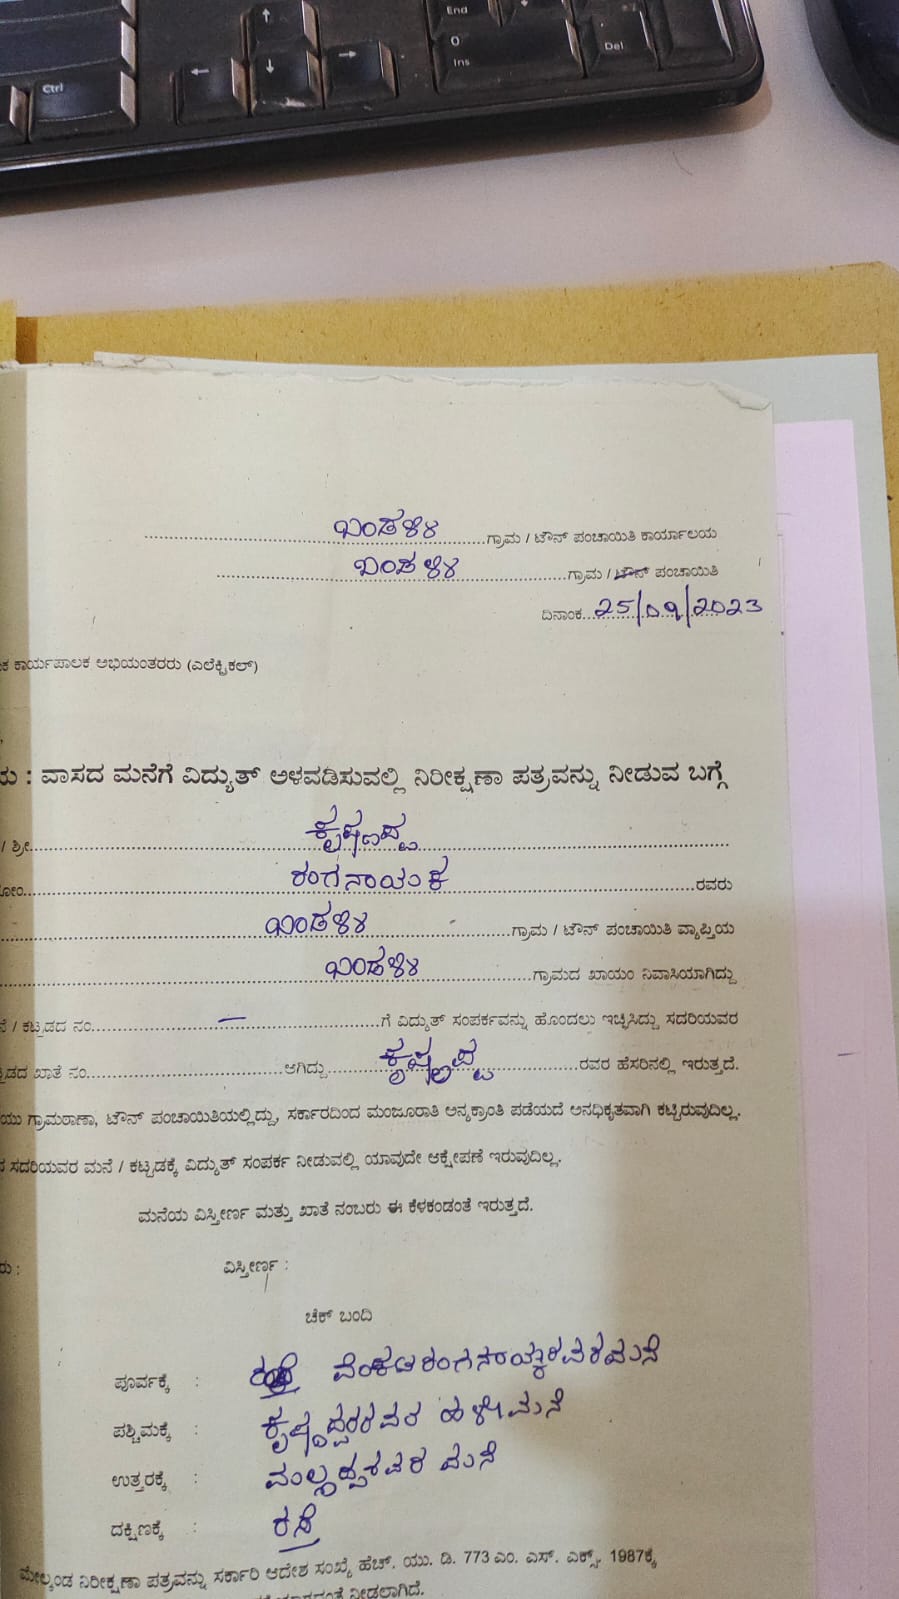 End
↑
0
Ins
Del
Ctrl
←
↓
→
ಬಂಡಳ್ಳಿ ಗ್ರಾಮ / ಟೌನ್ ಪಂಚಾಯಿತಿ ಕಾರ್ಯಾಲಯ
ಬಂಡಳ್ಳಿ ಗ್ರಾಮ / ಟೌನ್ ಪಂಚಾಯಿತಿ
ದಿನಾಂಕ 25/09/2023
ಕ ಕಾರ್ಯಪಾಲಕ ಅಭಿಯಂತರರು (ಎಲೆಕ್ಟ್ರಿಕಲ್)
ರು : ವಾಸದ ಮನೆಗೆ ವಿದ್ಯುತ್ ಅಳವಡಿಸುವಲ್ಲಿ ನಿರೀಕ್ಷಣಾ ಪತ್ರವನ್ನು ನೀಡುವ ಬಗ್ಗೆ
/ ಶ್ರೀ ಕೃಷ್ಣಪ್ಪ
ರಂಗನಾಯಕ ರವರು
ಬಂಡಳ್ಳಿ ಗ್ರಾಮ / ಟೌನ್ ಪಂಚಾಯಿತಿ ವ್ಯಾಪ್ತಿಯ
ಬಂಡಳ್ಳಿ ಗ್ರಾಮದ ಖಾಯಂ ನಿವಾಸಿಯಾಗಿದ್ದು
/ ಕಟ್ಟಡದ ನಂ. — ಗೆ ವಿದ್ಯುತ್ ಸಂಪರ್ಕವನ್ನು ಹೊಂದಲು ಇಚ್ಛಿಸಿದ್ದು ಸದರಿಯವರ
ಖಾತೆ ನಂ. ಆಗಿದ್ದು ಕೃಷ್ಣಪ್ಪ ರವರ ಹೆಸರಿನಲ್ಲಿ ಇರುತ್ತದೆ.
ಯು ಗ್ರಾಮಠಾಣಾ, ಟೌನ್ ಪಂಚಾಯಿತಿಯಲ್ಲಿದ್ದು, ಸರ್ಕಾರದಿಂದ ಮಂಜೂರಾತಿ ಅನ್ಯಕ್ರಾಂತಿ ಪಡೆಯದೆ ಅನಧಿಕೃತವಾಗಿ ಕಟ್ಟಿರುವುದಿಲ್ಲ.
ಸದರಿಯವರ ಮನೆ / ಕಟ್ಟಡಕ್ಕೆ ವಿದ್ಯುತ್ ಸಂಪರ್ಕ ನೀಡುವಲ್ಲಿ ಯಾವುದೇ ಆಕ್ಷೇಪಣೆ ಇರುವುದಿಲ್ಲ.
ಮನೆಯ ವಿಸ್ತೀರ್ಣ ಮತ್ತು ಖಾತೆ ನಂಬರು ಈ ಕೆಳಕಂಡಂತೆ ಇರುತ್ತದೆ.
ರು : ವಿಸ್ತೀರ್ಣ :
ಚೆಕ್ ಬಂದಿ
ಪೂರ್ವಕ್ಕೆ : ವೆಂಕಟರಂಗನಾಯ್ಕರವರಮನೆ
ಪಶ್ಚಿಮಕ್ಕೆ : ಕೃಷ್ಣಪ್ಪರವರ ಹಳೇಮನೆ
ಉತ್ತರಕ್ಕೆ : ಮಲ್ಲಪ್ಪರವರ ಮನೆ
ದಕ್ಷಿಣಕ್ಕೆ : ರಸ್ತೆ
ಮೇಲ್ಕಂಡ ನಿರೀಕ್ಷಣಾ ಪತ್ರವನ್ನು ಸರ್ಕಾರಿ ಆದೇಶ ಸಂಖ್ಯೆ ಹೆಚ್. ಯು. ಡಿ. 773 ಎಂ. ಎಸ್. ಎಕ್ಸ್. 1987ಕ್ಕೆ
ನೀಡಲಾಗಿದೆ.